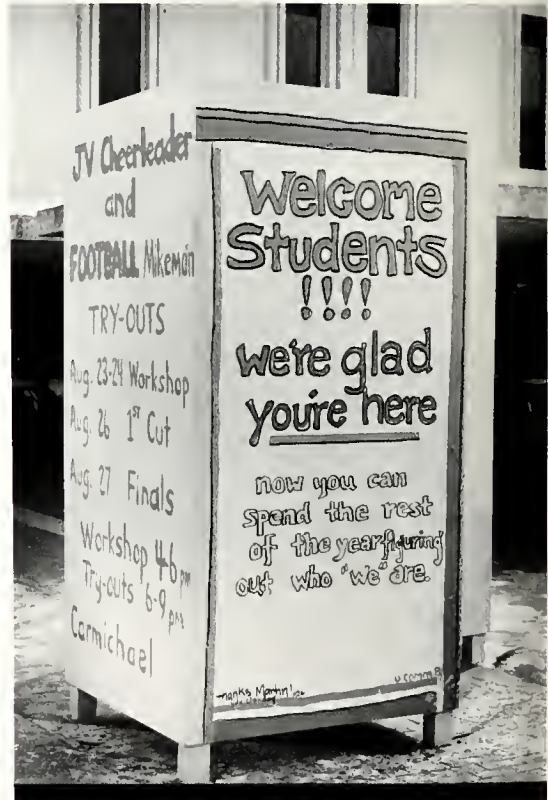 JV Cheerleader
and
FOOTBALL Mikeman
TRY-OUTS
Aug. 23-24 Workshop
Aug. 26 1ST Cut
Aug. 27 Finals
Workshop 4-6 pm
Try-outs 6-9 pm
Carmichael
Welcome
Students
!!!!
we're glad
you're here
now you can
spend the rest
of the year figuring
out who "we" are.
Thanks Martin!